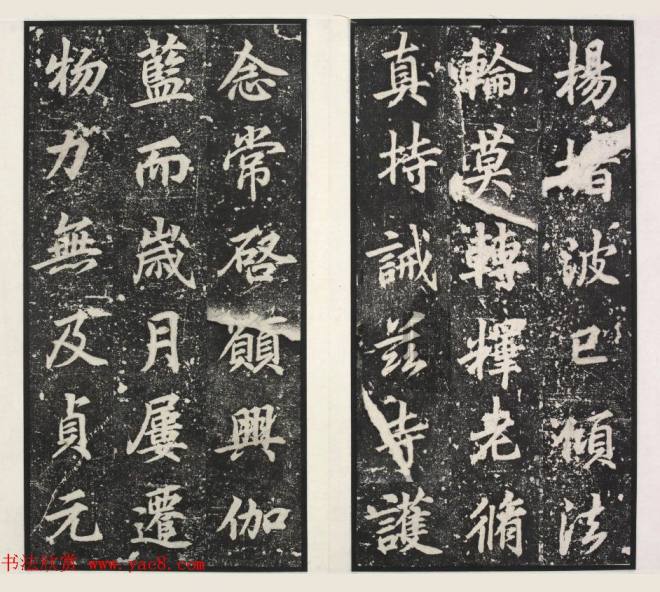 楊㧞波已傾法
輪莫轉釋老脩
真持誡兹寺護
念常啓願興伽
藍而歲月屢遷
物力無及貞元
书法欣赏 www.yac8.com